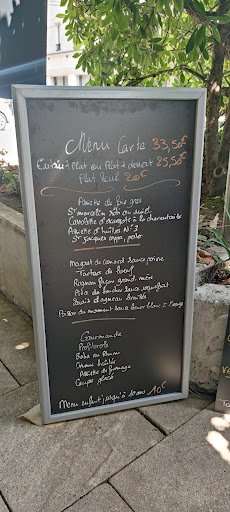 Menu Carte 33,50€
Entrée + Plat ou Plat + dessert 25,50€
Plat seul 20€
Assiette de foie gras
St marcellin rôti au miel
Cassolette d'escargots à la charentaise
Assiette d'huîtres N°3
St jacques
Magret de canard sauce poivre
Tartare de boeuf
Rognon façon grand mère
Pièce du boucher sauce roquefort
Souris d'agneau
Poisson du moment sauce beurre blanc à l'orange
Gourmande
Profiterole
Baba au Rhum
Crème brûlée
Assiette de fromage
Coupe glacée
Menu enfant jusqu'à 10 ans 10€